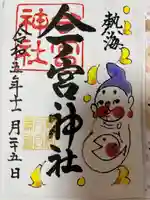 熱海
今宮神社
令和五年十一月二十五日
今宮
神社